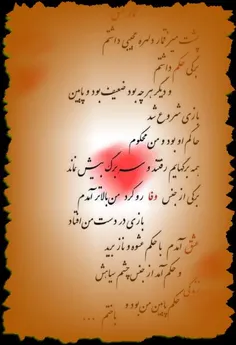 پشت میز قمار دلهره عجیبی داشتم
برگی حکم داشتم
و دیگر هر چه بود ضعیف بود و پایین
بازی شروع شد
حاکم او بود و من محکوم
همه برگهایم رفتند و سه برگ بیش نماند
برگی از جنس وفا رو کرد من بالاتر آمدم
بازی در دست من افتاد
عشق آمدم با حکم عشوه و ناز برید
و حکم آمد از جنس چشم سیاهش
زندگی حکم پایین من بود و
باختم ...